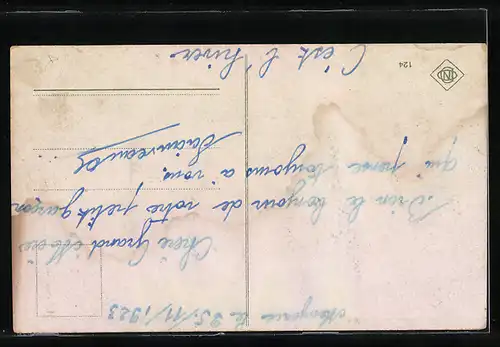 le 25/11/1923
Chère Grand Mère
Bien le bonjour de votre petit garçon
qui pense toujours à vous
C'est l'hiver.
124